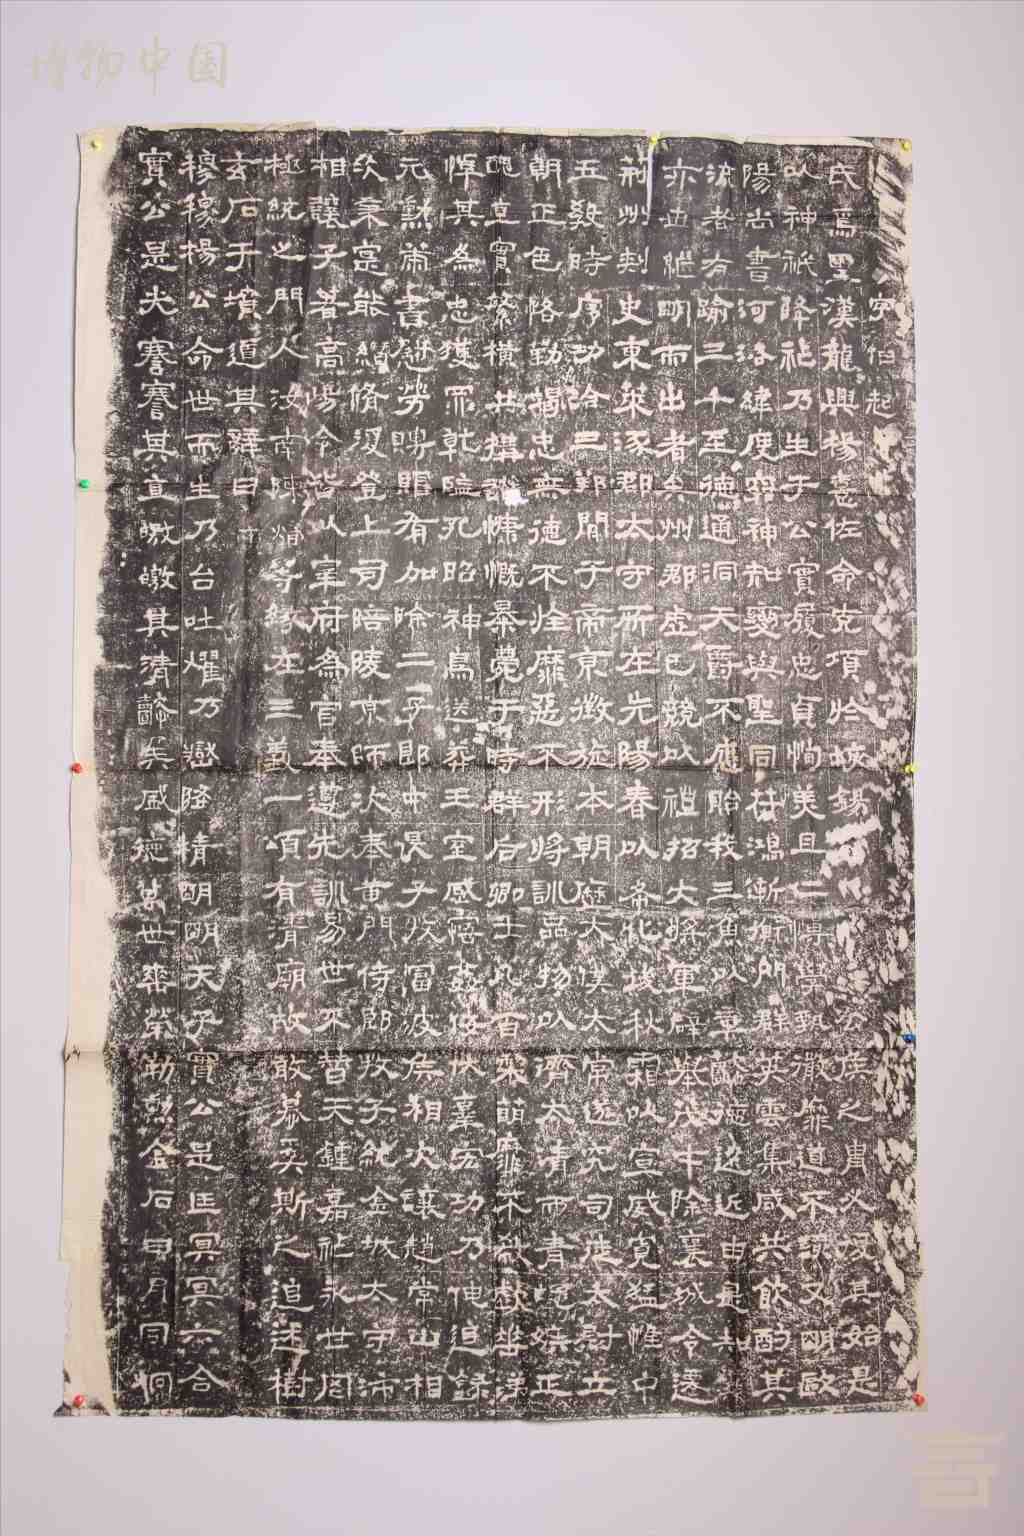 博物中国
字伯起
氏焉聖漢龍興楊憙佐命克項於垓錫矦之胄必復其始是
以神祇降祉乃生于公實履忠貞恂美且仁博學甄微靡道不該又明歐
陽尚書河洛緯度窮神知變與聖同符鴻漸衡門群英雲集咸共飲酌其
流者有踰三千至德通洞天爵不應貽我三魚以章懿德遠近由是知
亦世繼明而出者矣州郡虛己競以禮招大將軍辟舉茂才除襄城令遷
荊州刺史東萊涿郡太守所在先陽春以布化後秋霜以宣威寬猛惟中
五教時序功洽三邦聞于帝京徵旋本朝歷太僕太常遂究司徒太尉立
朝正色恪勤竭忠無德不旌靡惡不形將訓品物以濟太清而青蠅嫉正
醜直實繁橫共搆譖慷慨暴薨于時群后卿士凡百棃萌靡不欷歔垂涕
悼其為忠獲罪乾監孔昭神鳥送葬王室感寤姦佞伏辜宏功乃伸追錄
元勲策書慰勞賻賵有加除二子郎中長子牧富波侯相次讓趙常山相
次秉寔能纘脩復登上司陪陵京師次奉黃門侍郎牧子統金城大守沛
相讓子著高陽令皆以宰府為官奉遵先訓易世不替天鍾嘉祉永世罔
極統之門人汝南陳熾等緣在三義一頌有清廟故敢慕奚斯之追述樹
玄石于墳道其辭曰
穆穆楊公命世而生乃台吐耀乃嶽降精明明天子實公是匡冥冥六合
實公是光謇謇其直皦皦其清懿矣盛德萬世垂榮勒勲金石日月同炯